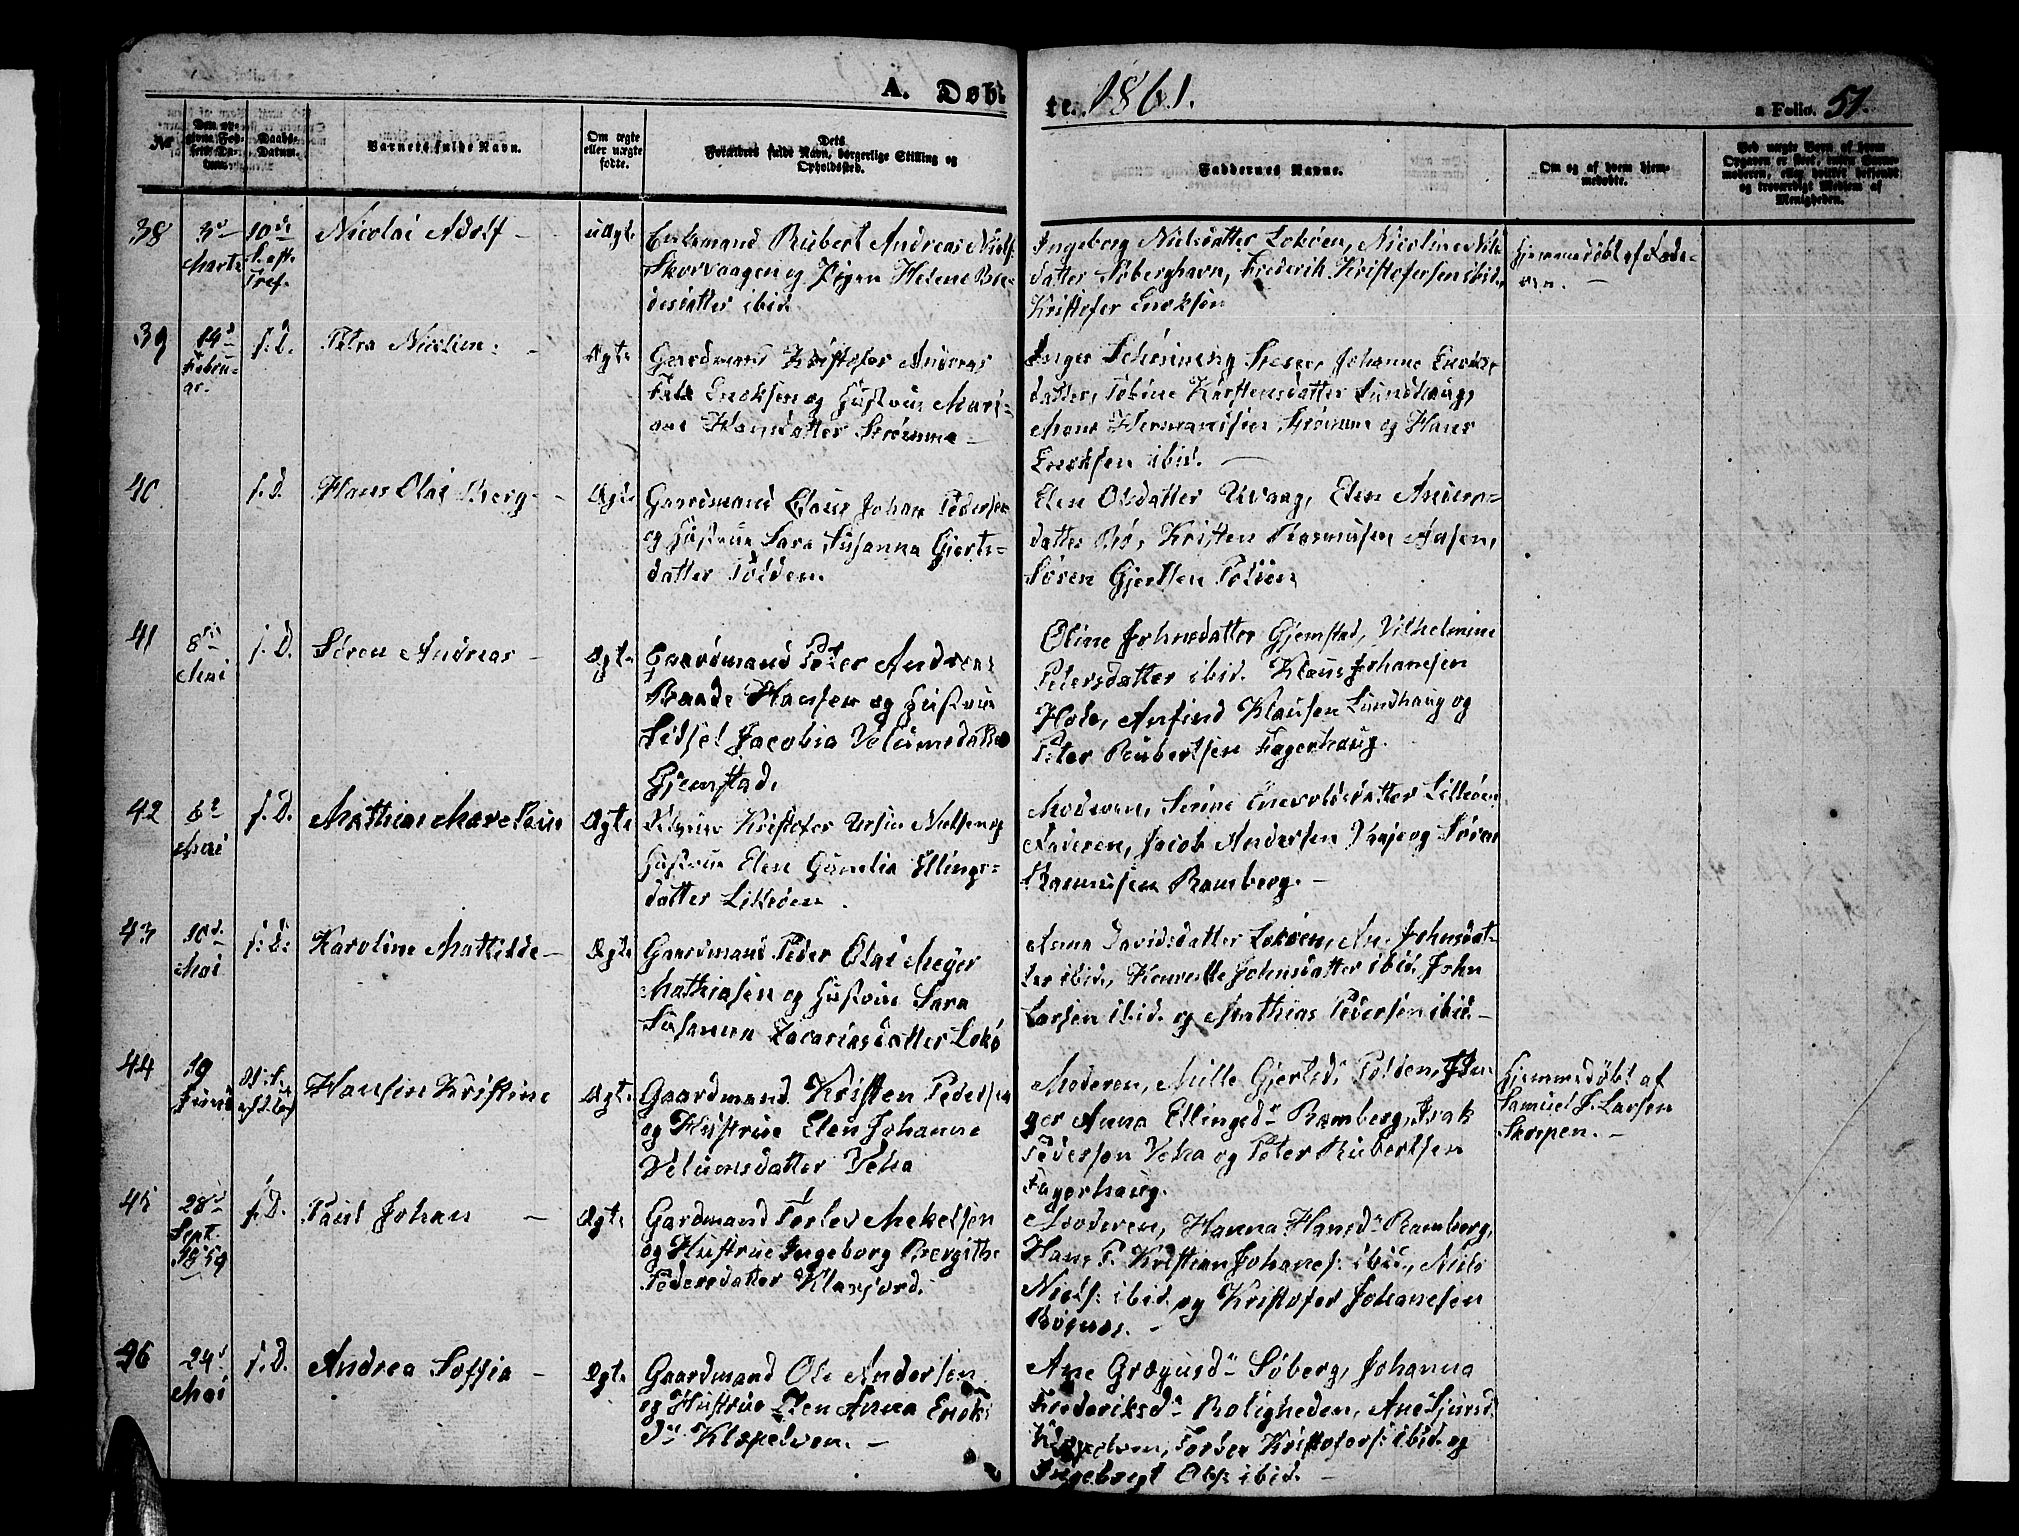 A. Døbte. 1861.
a Folio. 51.
No
Daabs-
Datum.
Barnets fulde Navn.
Om ægte
eller uægte
fødte.
Dets
Forældres fulde Navn, borgerlige Stilling og
Opholdssted.
Faddernes Navne.
Om og af hvem hjem-
medøbte.
38
3d
Marts
10de
Nicolai Adolf -
uÆgte
Enkemand Rubert Andreas Niels:
Skorvaagen og Pigen Helene
ibid.
Ingeborg Nielsdatter Lokøen, Nicoline Niels
datter Søberghavn, Frederik Kristofersen ibid.
Kristofer Enoksen
Hjemmedøbt af
39
14d
Februar.
s. D.
Petra Nicoline: -
Ægte
Gaardmand Kristofer Andreas
Falk Enoksen og Hustrue Mari-
ane Hansdatter Strømme -
Inger Johanne Enoks-
datter, Karstensdatter Lundhaug,
Hermansen Strømme og Hans
Enoksen ibid. -
40
s. D.
Hans Olai Berg -
Ægte
Gaardmand Claus Johan Pedersen
og Hustrue Sara Susanna Gjerts-
datter Polden.
Elen Olsdatter Uvaag, Elen Anders-
datter Bø, Kristen Rasmusen Aasen,
Søren Gjertsen Polden
41
8de
Mai
s. D.
Søren Andreas -
Ægte
Gaardmand Peter Andreas
Baade Hansen og Hustrue
Sidsel Jacobia Velumsdatter
Gjemstad.
Oline Johnsdatter Gjemstad, Vilhelmine
Petersdatter ibid. Klaus Johansen
Hole, Anfind Klausen Lundhaug og
Peter Rubertsen Fagerhaug.
42
6d
Mai
s. D.
Mathias
Ægte
Kristofer Ursin Nielsen og
Hustrue Elen Gunelia Ellings-
datter Lilleøen.
Moderen, Serine Enevoldsdatter Lilleøen
Faderen, Jacob Andersen Vaaje og Søren
Rasmusen Ramberg. -
43
10d
Mai
s: D:
Karoline Mathilde -
Ægte
Gaardmand Peder Olai Meyer
Mathiasen og Hustrue Sara
Susanna Zacariasdatter Lokø
Anna Davidsdatter Lokøen, An. Johnsdat-
ter ibid, Johnsdatter ibid. John
Larsen ibid. og Mathias Pedersen ibid. -
44
19
Juni
Hansin Kristine
Ægte
Gaardmand Kristen Pedersen
og Hustrue Elen Johanne
Velumsdatter Veka
Moderen, Mille Gjertsd. Polden, In-
ger Anna Ellingsdr Ramberg, Isak
Pedersen Veka og Peter Rubertsen
Fagerhaug.
Hjemmedøbt af
Samuel J. Larsen
Skorpen. -
45
28d
Sept.
1859
s. D.
Paul Johan -
Ægte
Gardmand Torlev Mekelsen
og Hustrue Ingeborg Bergithe
Pedersdatter Klaxjord.
Moderen, Hanna Hansdr Ramberg,
Hans P. Kristian Johanes: ibid., Niels
Niels: ibid. og Kristofer Johanesen
Bøgnæs. -
46
24d
Mai
s. D.
Andrea Soffia -
Ægte
Gaardmand Ole Andersen
og Hustrue Elen Anna Enoks
dr Klapelven. -
Ane Grægusdr Søberg, Johanna
Frederiksdr Roligheden, Ane Sjursd.
Klapelven, Kristofers: ibid. og
Ingebregt Ols: ibid. -